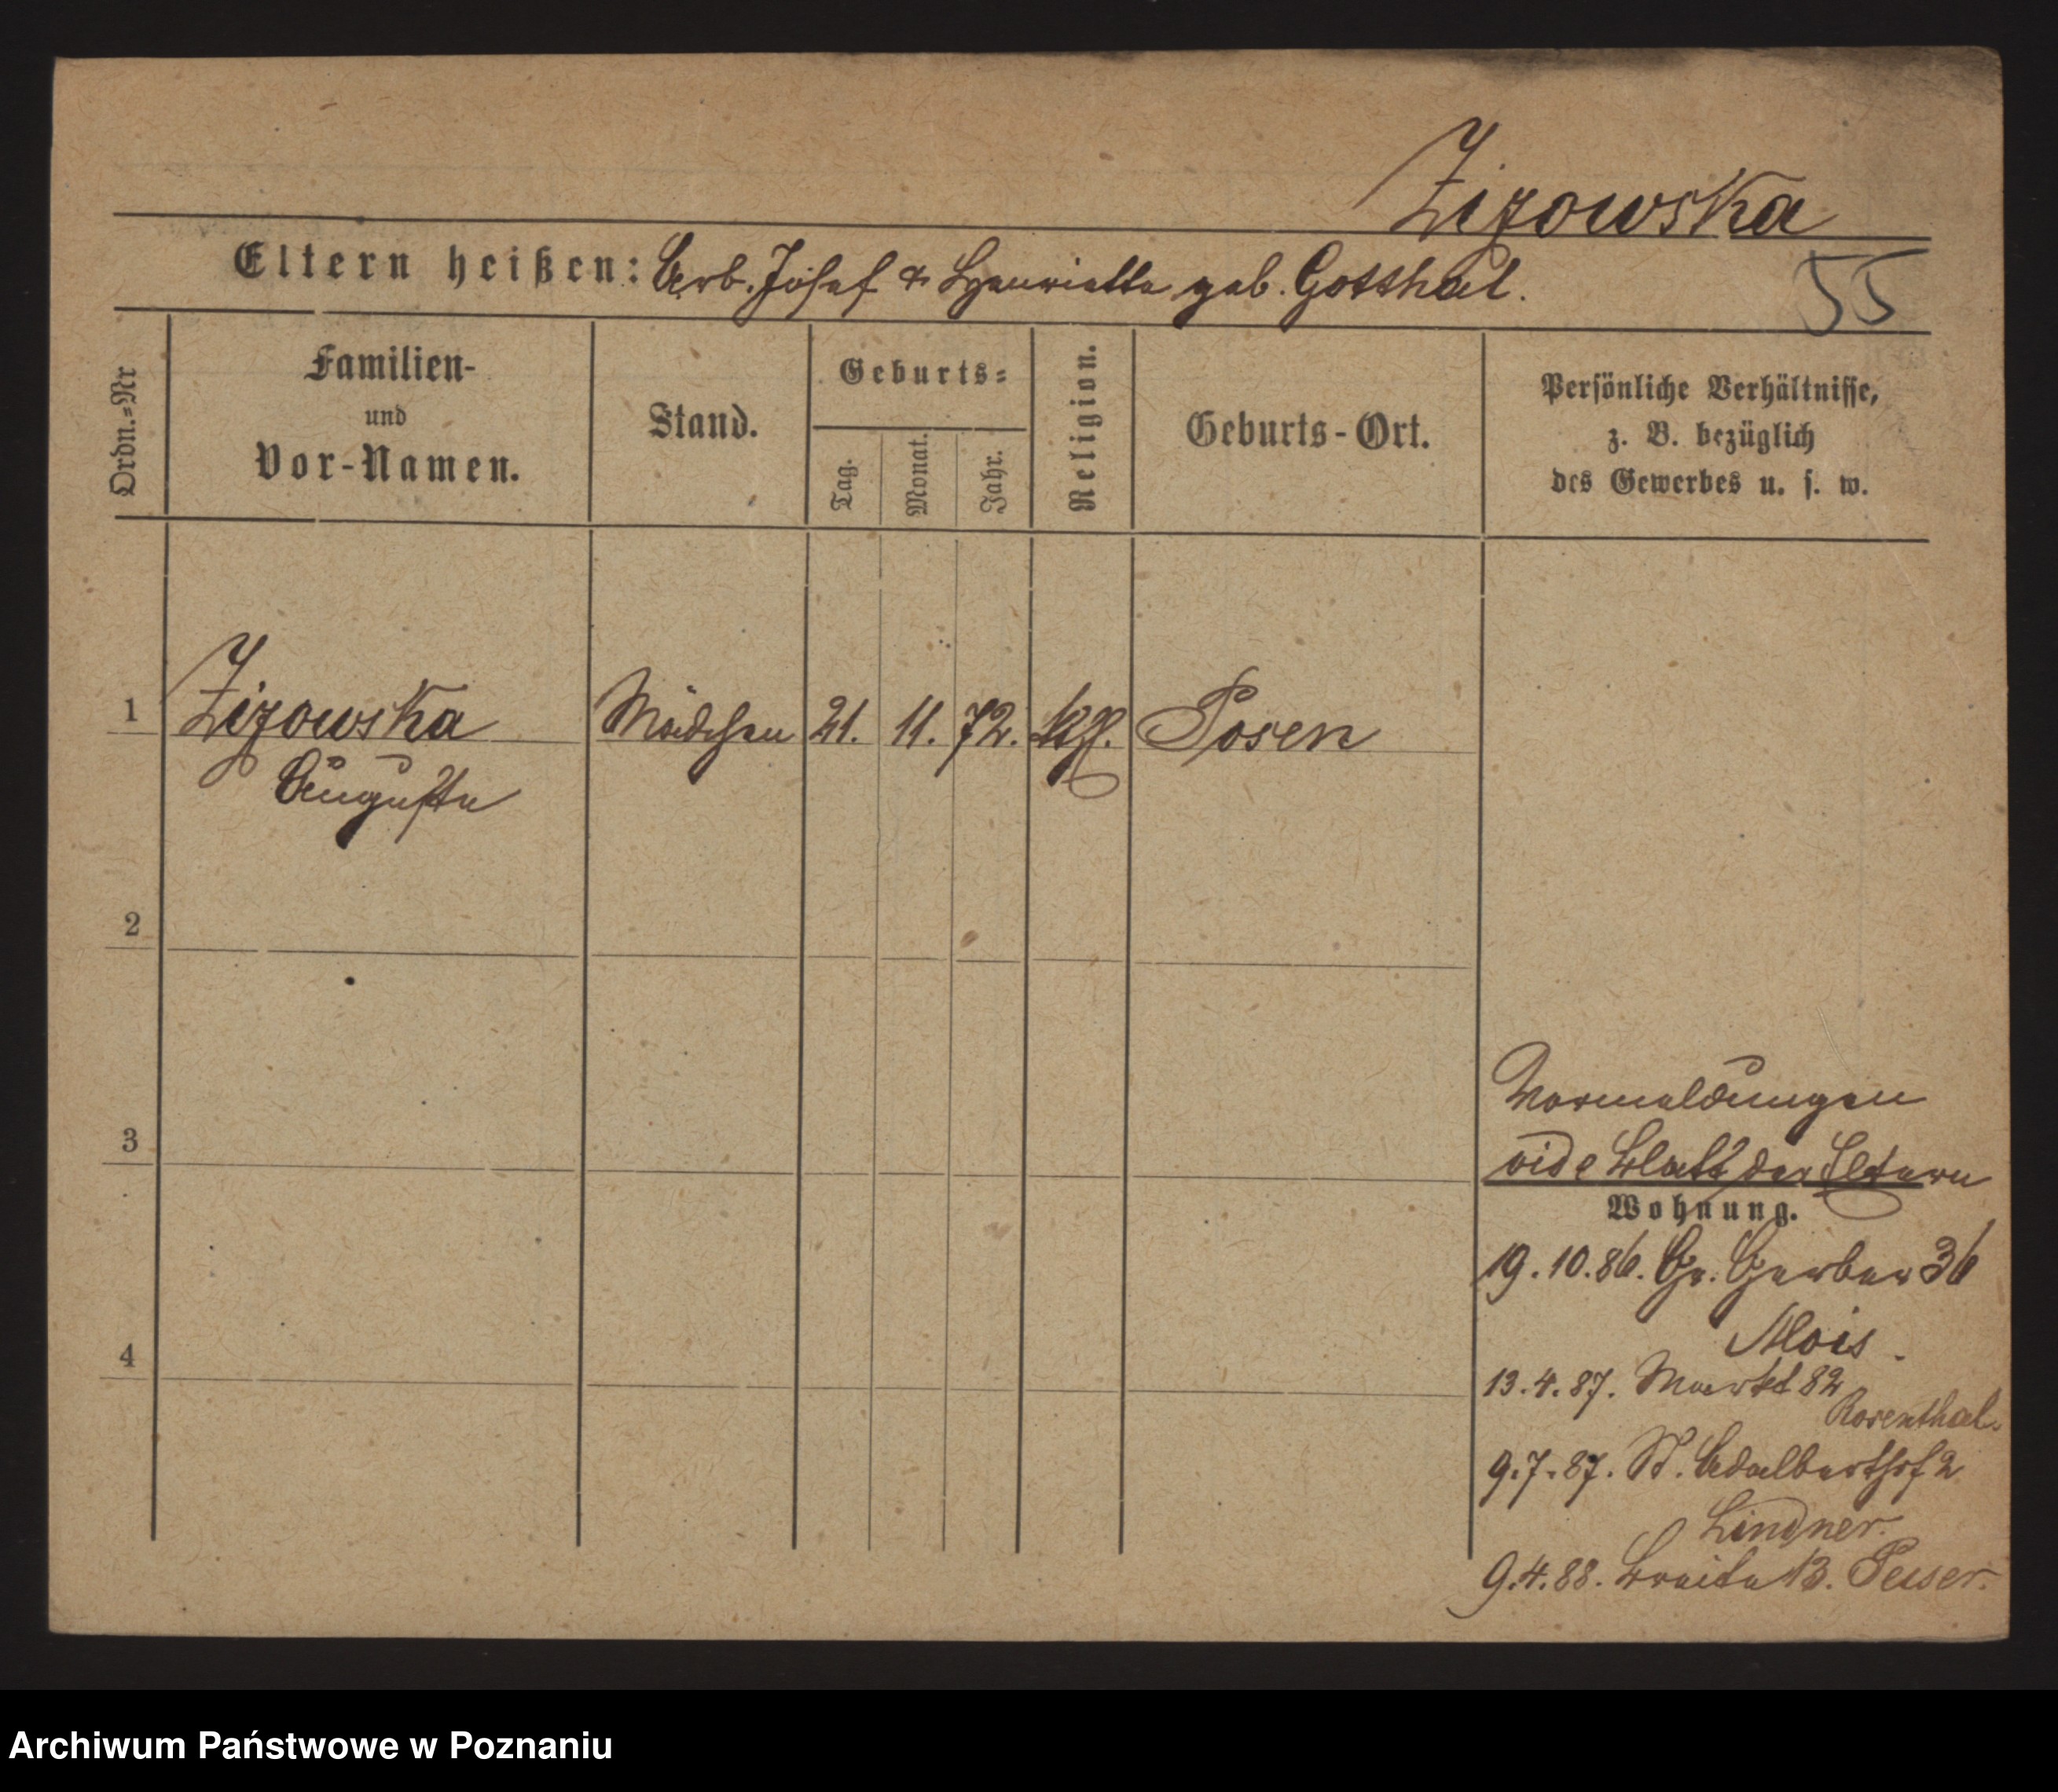 Zizowska
Eltern heißen: Arb. Josef & Henriette geb. Gotthal.
55
Ordn.=Nr
Familien-
und
Vor-Namen.
Stand.
Geburts=
Tag.
Monat.
Jahr.
Religion.
Geburts-Ort.
Persönliche Verhältnisse,
z. B. bezüglich
des Gewerbes u. s. w.
1 Zizowska Mädchen 21. 11. 72. kth. Posen
Auguste
2
3
4
Vormeldungen
vide Blatt der Eltern
Wohnung.
19.10.86. Gr. Gerber 36
Alois.
13.4.87. Markt 82
Rosenthal.
9.7.87. St. Adalberthof 2
Lindner.
9.4.88. Breite 13. Peiser.
Archiwum Państwowe w Poznaniu